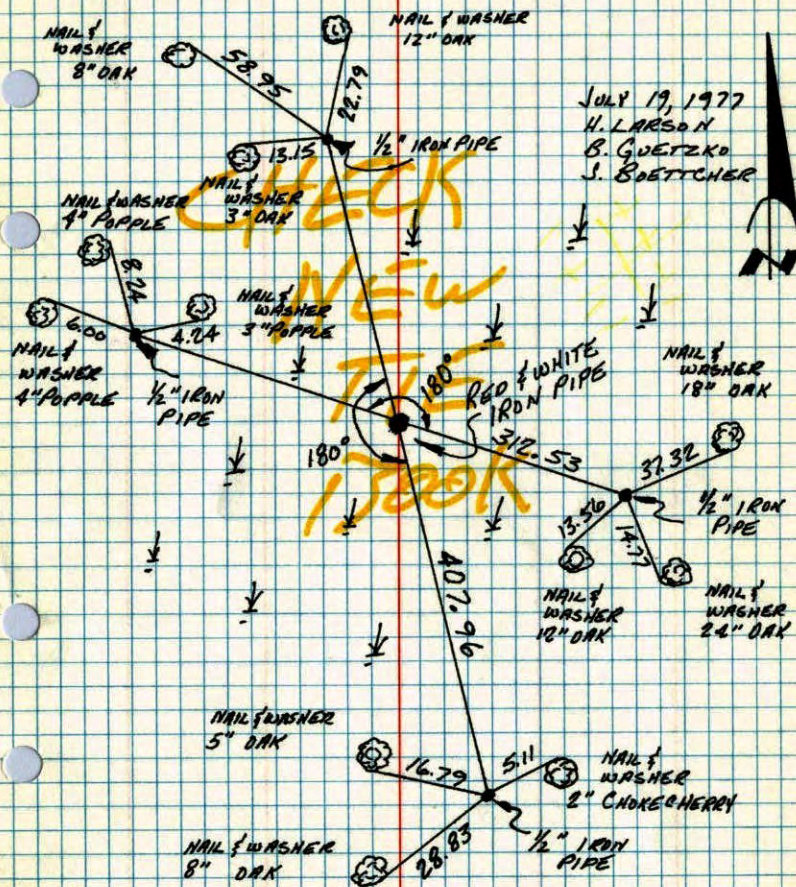 NAIL & WASHER
12" OAK
NAIL &
WASHER
8" OAK
58.95
22.79
JULY 19, 1977
H. LARSON
B. GUETZKO
J. BOETTCHER
1/2" IRON PIPE
13.15
NAIL &
WASHER
3" OAK
CHECK
NEW
TIE
BOOK
N
NAIL & WASHER
4" POPPLE
8.24
NAIL &
WASHER
3" POPPLE
6.00
4.24
NAIL &
WASHER
4" POPPLE
1/2" IRON
PIPE
180°
RED & WHITE
IRON PIPE
NAIL &
WASHER
18" OAK
180°
312.53
37.32
1/2" IRON
PIPE
13.56
14.77
NAIL &
WASHER
12" OAK
NAIL &
WASHER
24" OAK
407.96
NAIL & WASHER
5" OAK
16.79
5.11
NAIL &
WASHER
2" CHOKECHERRY
28.83
1/2" IRON
PIPE
NAIL & WASHER
8" OAK